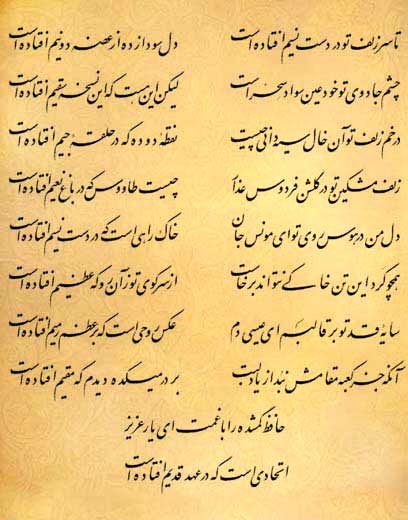 تا سر زلف تو در دست نسیم افتاده است دل سودازده از غصه دو نیم افتاده است
چشم جادوی تو خود عین سواد سحر است لیکن این هست که این نسخه سقیم افتاده است
در خم زلف تو آن خال سیه دانی چیست نقطه دوده که در حلقه جیم افتاده است
زلف مشکین تو در گلشن فردوس عذار چیست طاووس که در باغ نعیم افتاده است
دل من در هوس روی تو ای مونس جان خاک راهی است که در دست نسیم افتاده است
همچو گرد این تن خاکی نتواند برخاست از سر کوی تو زآن رو که عظیم افتاده است
سایه قد تو بر قالبم ای عیسی دم عکس روحی است که بر عظم رمیم افتاده است
آنکه جز کعبه مقامش نبد از یاد لبت بر در میکده دیدم که مقیم افتاده است
حافظ گمشده را با غمت ای یار عزیز
اتحادی است که در عهد قدیم افتاده است